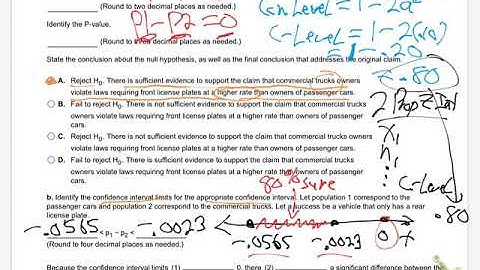 (Round to two decimal places as needed.)
Con Level = 1 - 2α
Identify the P-value.
P1 - P2 = 0
C-Level = 1 - 2(.10)
(Round to three decimal places as needed.)
= 1 - .20
State the conclusion about the null hypothesis, as well as the final conclusion that addresses the original claim.
= .80
A. Reject H0. There is sufficient evidence to support the claim that commercial trucks owners
violate laws requiring front license plates at a higher rate than owners of passenger cars.
B. Fail to reject H0. There is not sufficient evidence to support the claim that commercial trucks
owners violate laws requiring front license plates at a higher rate than owners of passenger
cars.
C. Reject H0. There is not sufficient evidence to support the claim that commercial trucks owners
violate laws requiring front license plates at a higher rate than owners of passenger cars.
D. Fail to reject H0. There is sufficient evidence to support the claim that commercial trucks
owners violate laws requiring front license plates at a higher rate than owners of passenger
cars.
2 Prop Z Int
x1
n1
C-Level
.80
80% sure
b. Identify the confidence interval limits for the appropriate confidence interval. Let population 1 correspond to the
passenger cars and population 2 correspond to the commercial trucks. Let a success be a vehicle that only has a rear
license plate.
-.0565 < p1 - p2 < -.0023
-.0565 -.0023 0 +
(Round to four decimal places as needed.)
Because the confidence interval limits (1) 0, there (2) a significant difference between the